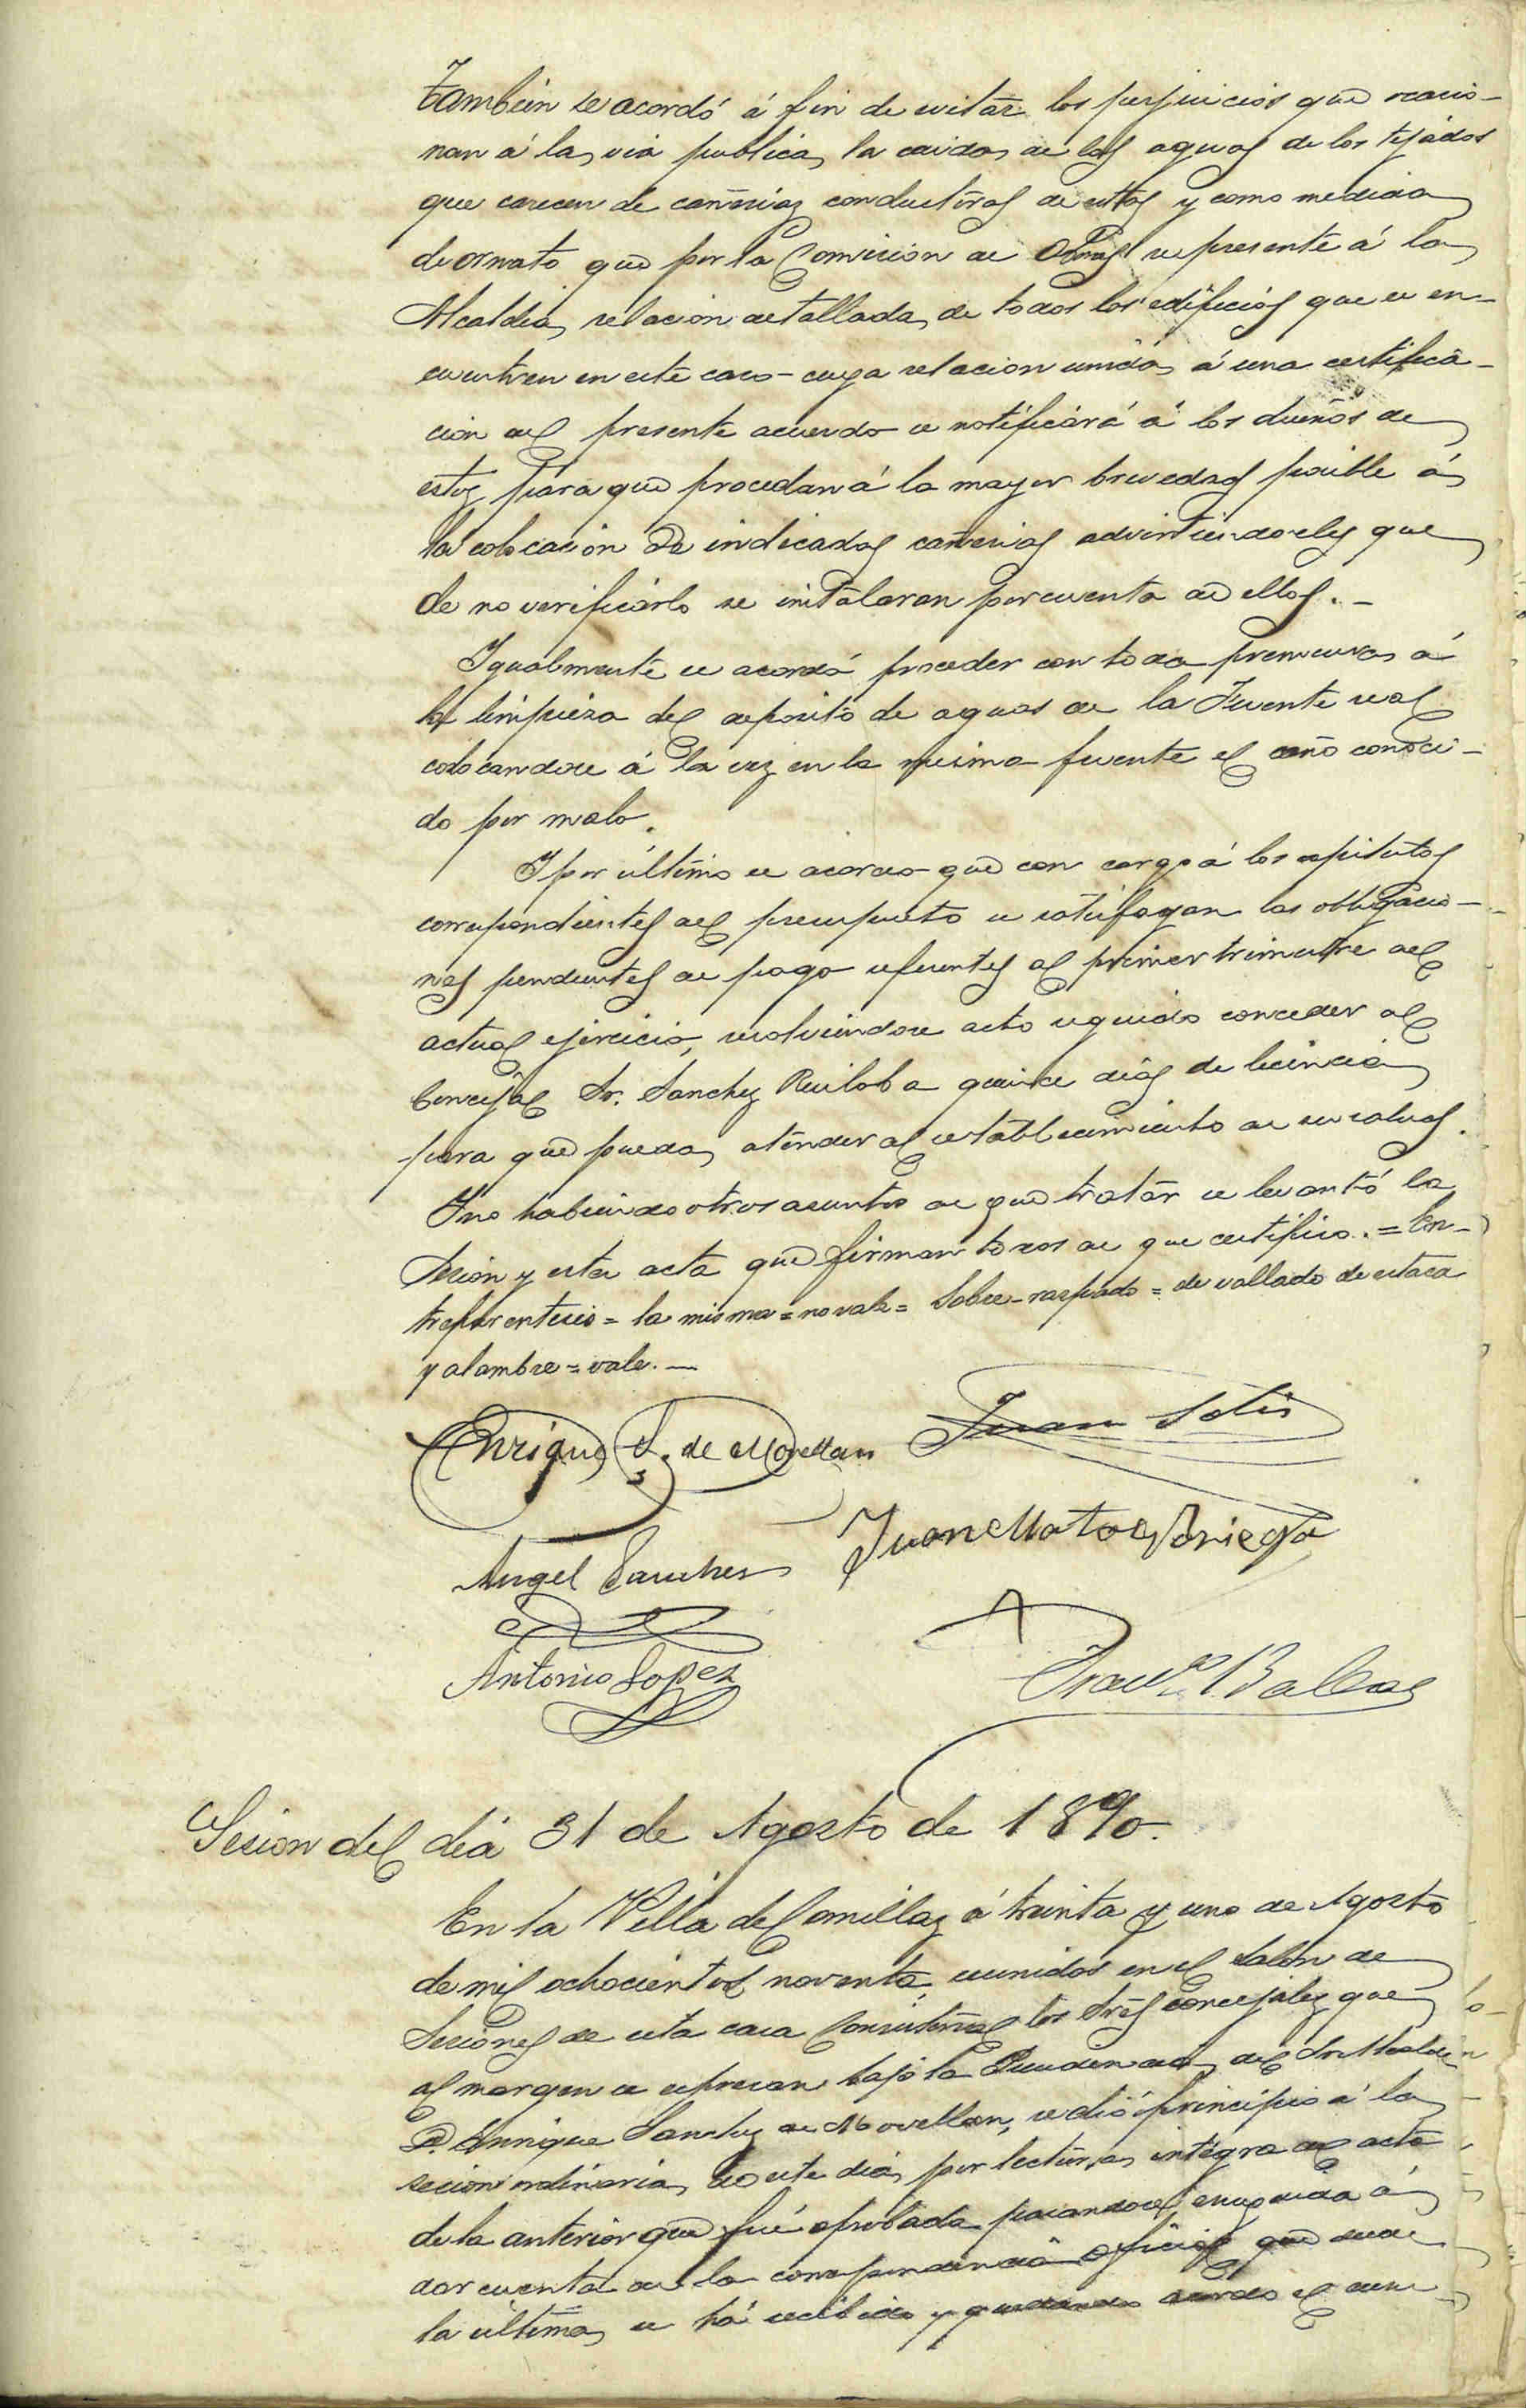 También se acordó á fin de evitar los perjuicios que ocacio-
nan á la via publica, la caida de las aguas de los tejados
que carecen de cañerias conductoras de estas y como medida
de ornato que por la Comision de Obras se presente á la
Alcaldia, relacion detallada de todos los edificios que se en-
cuentren en este caso - cuya relacion unida á una certifica-
cion del presente acuerdo se notificará á los dueños de
estos para que procedan á la mayor brevedad posible á
la colocacion de indicadas cañerias advirtiendoseles que
de no verificarlo se instalaran por cuenta de ellos. -
Igualmente se acordó proceder con toda premura á
la limpieza del deposito de aguas de la Fuente real
colocandose á la vez en la misma fuente el caño conoci-
do por malo.
Y por último se acordo que con cargo á los capitulos
correspondientes del presupuesto se satisfagan las obligacio-
nes pendientes de pago referentes al primer trimestre del
actual ejercicio, resolviendose acto seguido conceder al
Concejal Sr. Sanchez Ruiloba quince dias de licencia
para que pueda atender al restablecimiento de su salud.
Y no habiendo otros asuntos de que tratar se levantó la
Sesion y esta acta que firman todos de que certifico. = En-
treparentesis = la misma = no vale = Sobre-raspado = de vallado de estaca
y alambre = vale. -
Enrique S. de Movellan Juan Solis
Angel Sanchez Juan Mata Noriega
Antonio Lopez Franco Balbas
Sesion del dia 31 de Agosto de 1890.
En la Villa de Comillas á treinta y uno de Agosto
de mil ochocientos noventa, reunidos en el Salon de
Sesiones de esta casa Consistorial los Sres concejales que
al margen se expresan bajo la Presidencia del Sr Alcalde
D. Enrique Sanchez de Movellan, se dió principio á la
secion ordinaria de este dia, por lectura integra del acta
de la anterior que fué aprobada pasandose enseguida á
dar cuenta de la correspondencia oficial que desde
la última se há recibido y quedando acordo el cum-